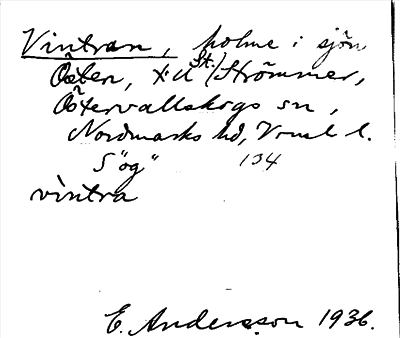 Vintran, holme i sjön
Östen, t.d (St.) Strömmer,
Östervallskogs sn,
Nordmarks hd, Vrml l.
S "ög" 134
vintra
E. Andersson 1936.